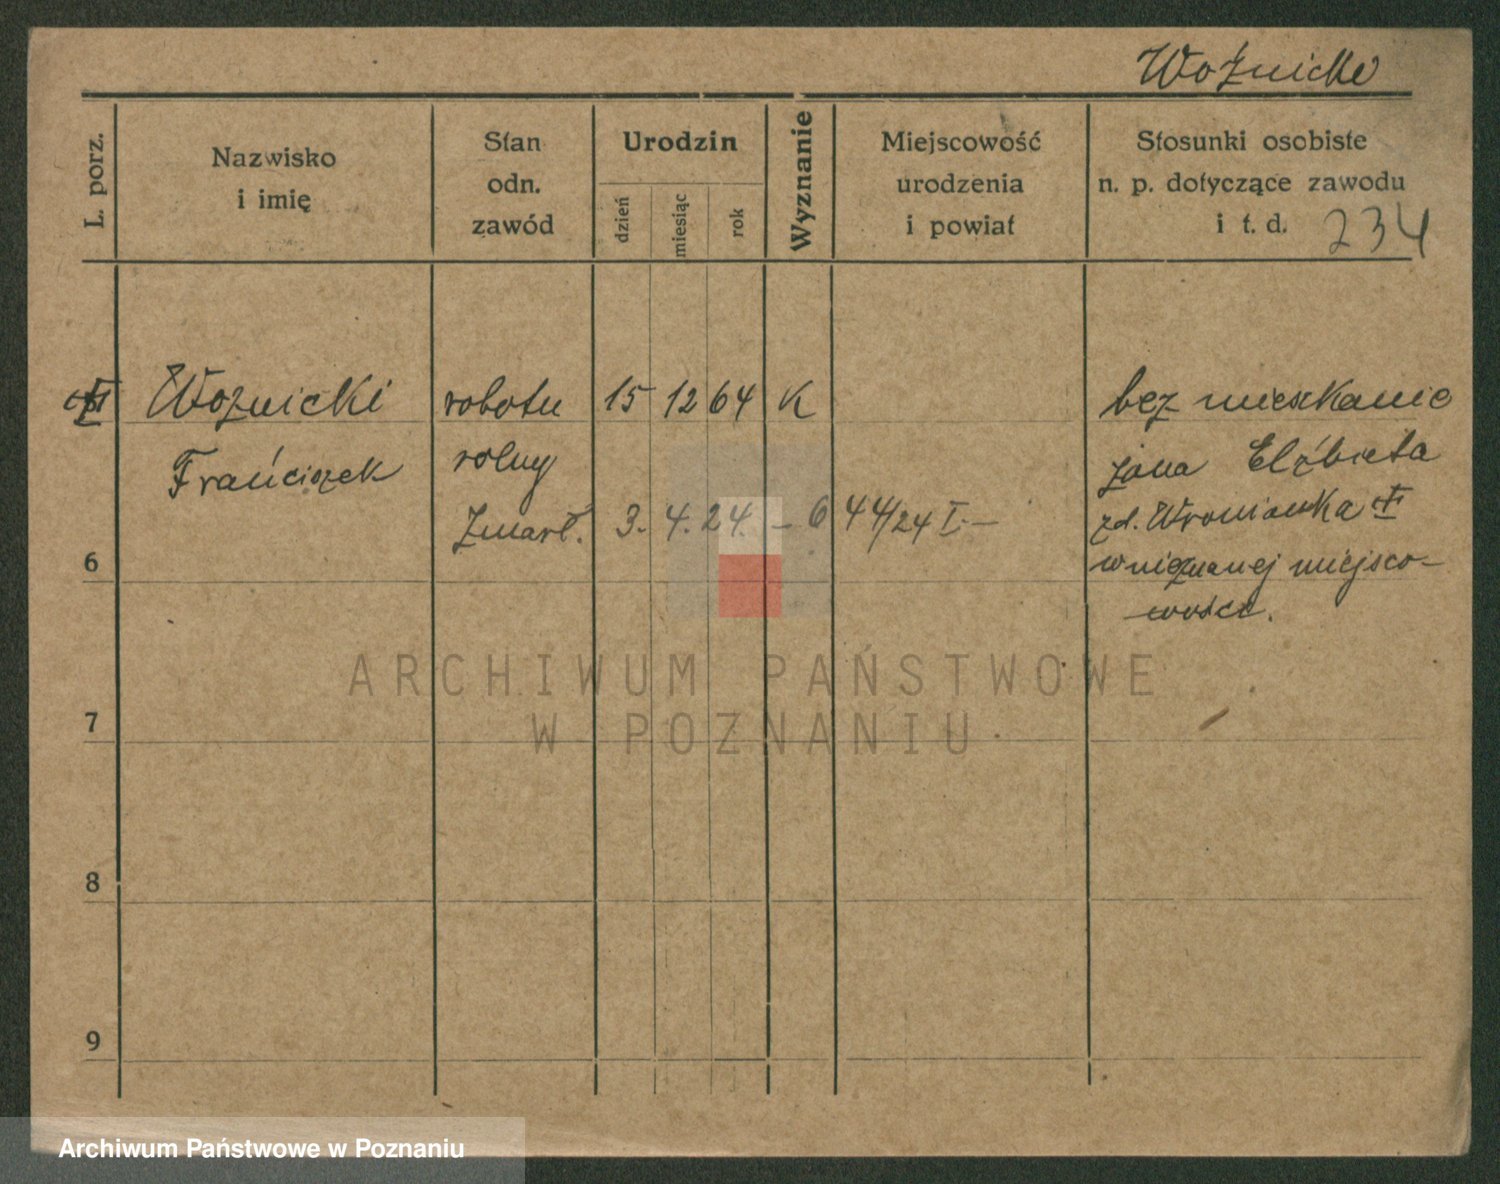 Woźnicki
L. porz.
Nazwisko
i imię
Stan
odn.
zawód
Urodzin
dzień
miesiąc
rok
Wyznanie
Miejscowość
urodzenia
i powiat
Stosunki osobiste
n. p. dotyczące zawodu
i t. d. 234
Woznicki robotn 15 12 64 K bez mieszkanie
Franciszek rolny żona Elżbieta
Zmarł. 3. 4. 24. – 6 44/24 I. – zd. Wronianka
6 w nieznanej miejsco-
wości.
ARCHIWUM PAŃSTWOWE
W POZNANIU
7
8
9
Archiwum Państwowe w Poznaniu